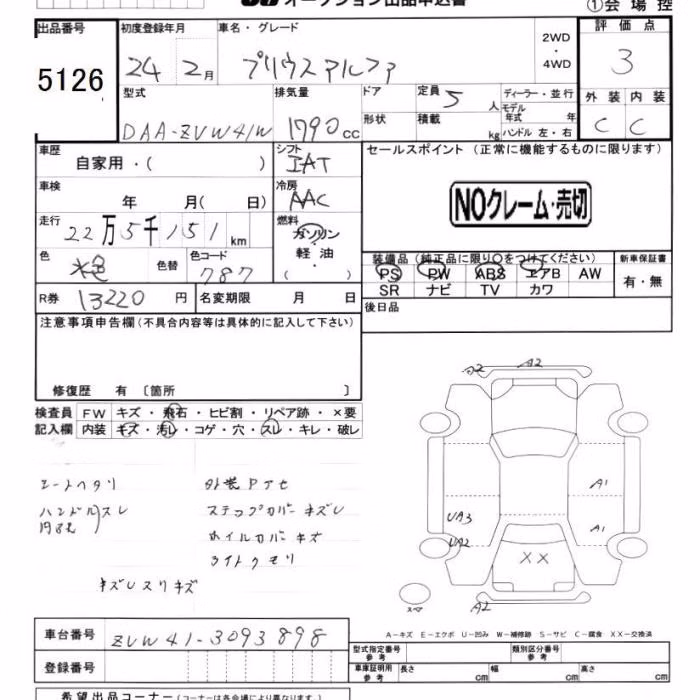 オークション出品申込書
①会場控
出品番号
5126
初度登録年月
24 2月
車名・グレード
プリウスアルファ
2WD
・
4WD
評価点
3
外装 内装
C C
型式
DAA-ZVW41W
排気量
1790cc
ドア
形状
定員 5人
積載 kg
ディーラー・並行
モデル
年式 年
ハンドル 左・右
車歴
自家用・( )
シフト
IAT
車検
年 月( 日)
冷房
AAC
走行
22万5千151km
燃料
ガソリン
軽油
・
( )
色
色替
色コード
787
R券 13220円
名変期限 月 日
セールスポイント(正常に機能するものに限ります)
NOクレーム・売切
装備品(純正品に限り○をつけてください)
PS PW ABS エアB AW
SR ナビ TV カワ
新車保証書
有・無
後日品
注意事項申告欄(不具合内容等は具体的に記入して下さい)
修復歴 有 〔箇所 〕
検査員
記入欄
FW キズ・飛石・ヒビ割・リペア跡・×要
内装 キズ・汚レ・コゲ・穴・スレ・キレ・破レ
シートヘタリ
ハンドルスレ
外装Pアセ
ステップカバーキズレ
ホイルカバーキズ
ライトクモリ
キズレスリキズ
A2 A2
A1
UA3
A1
UA2
XX
スペア
A2
A－キズ E－エクボ U－凹み W－補修跡 S－サビ C－腐食 XX－交換済
車台番号 ZVW41-3093898
登録番号
型式指定番号
参考
類別区分番号
参考
車庫証明用
参考
長さ cm 幅 cm 高さ cm
希望出品コーナー(コーナーは各会場により異なります)